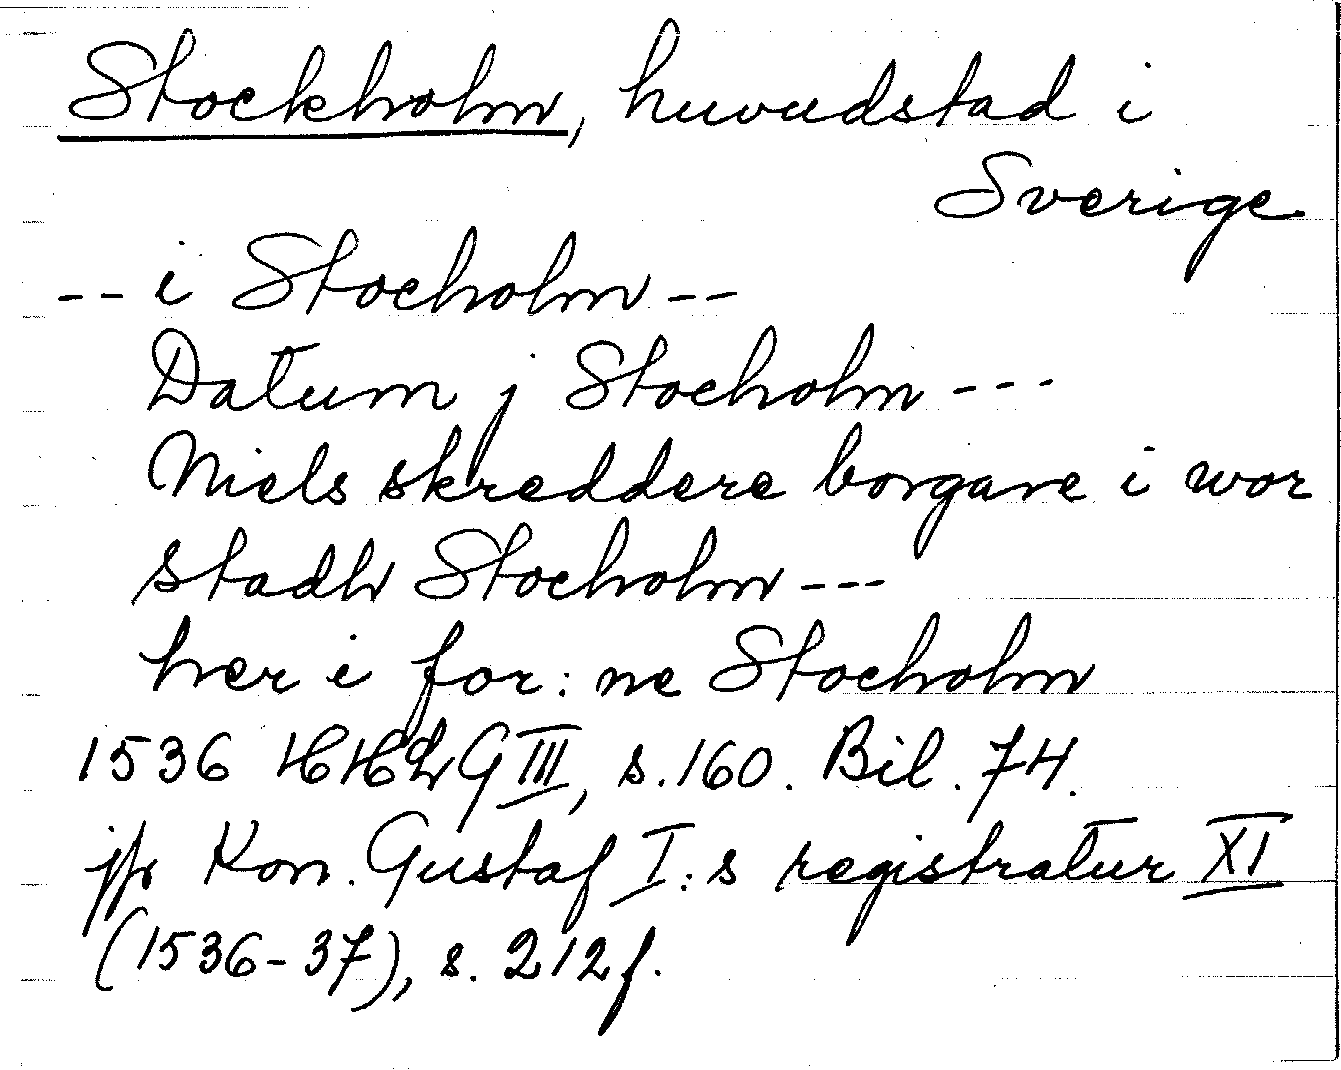 Stockholm, huvudstad i
Sverige
-- i Stocholm --
Datum j Stocholm ---
Niels skreddere borgare i wor
stadh Stocholm ---
her i for: ne Stocholm
1536 HHLG III, s. 160. Bil. 74.
jfr Kon. Gustaf I:s registratur XI
(1536-37), s. 212f.